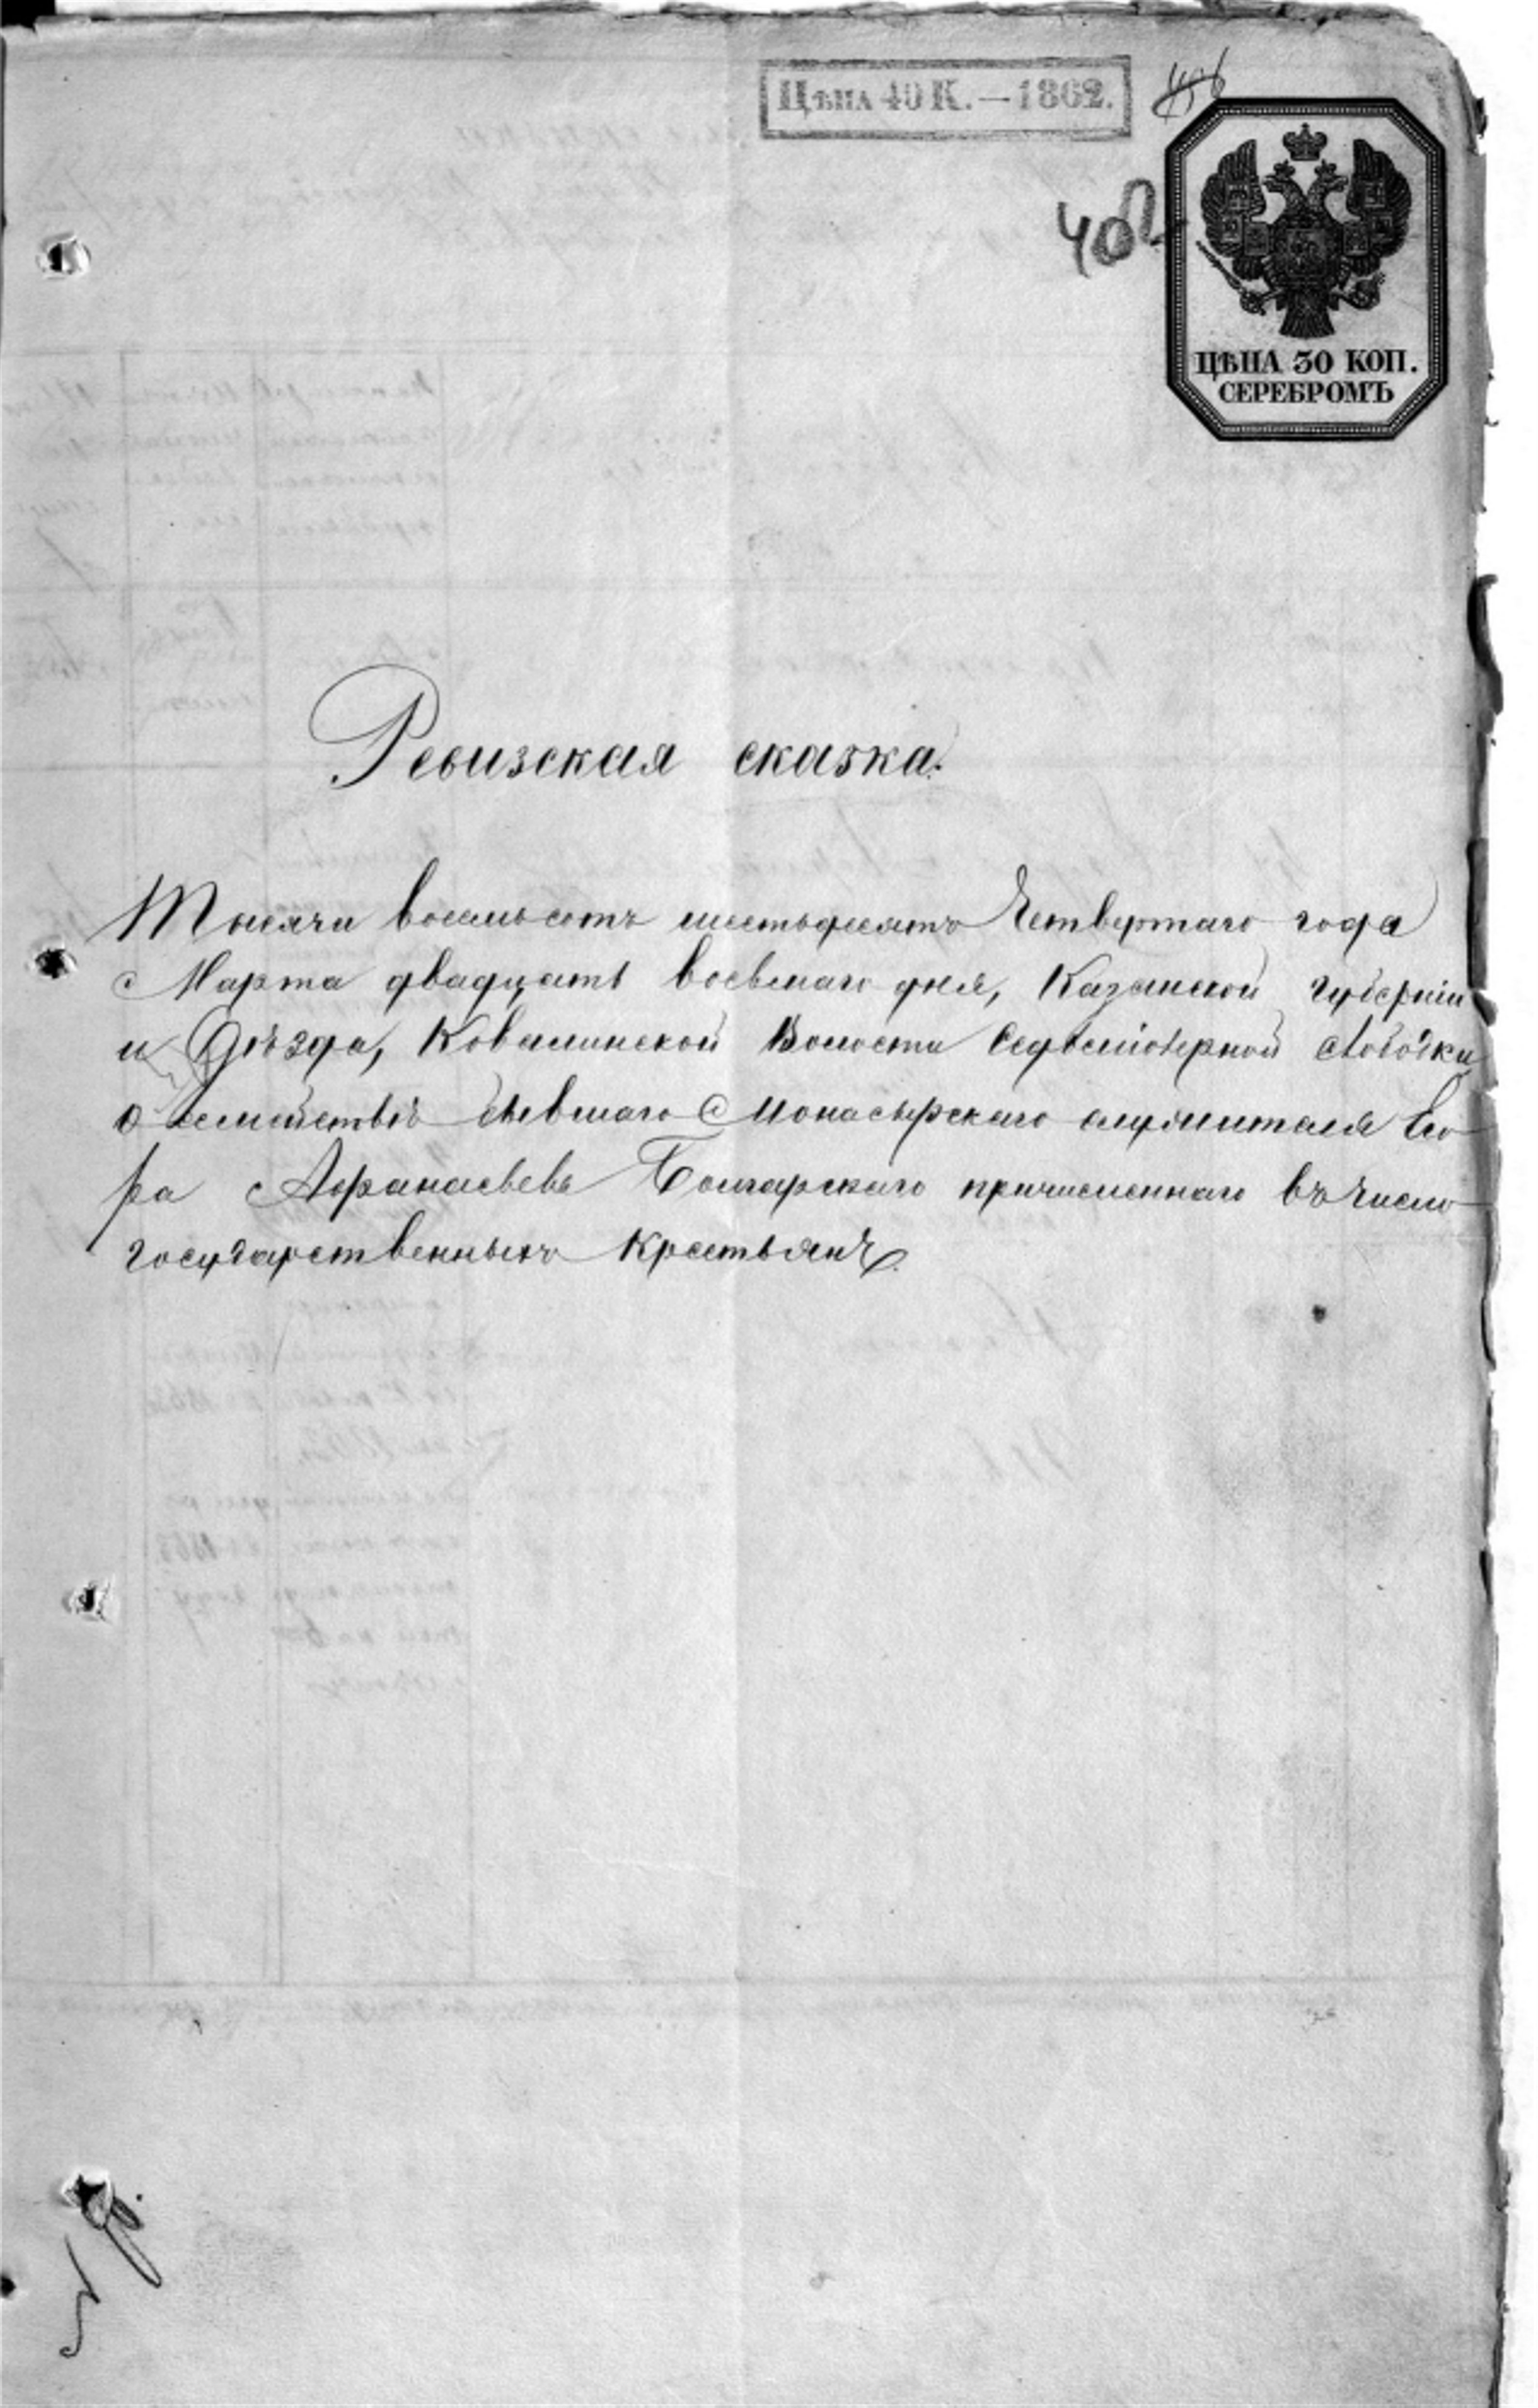 Цѣна 40 К. — 1862.
402
ЦѢНА 30 КОП.
СЕРЕБРОМЪ
Ревизская сказка.
Тысяча восемьсотъ шестьдесятъ Четвертаго года
Марта двадцать восьмаго дня, Казанской губерніи
и Уѣзда, Ковалинской Волости Седьміозерной слободки
о семействѣ бывшаго Монастырскаго служителя Его
ра Афанасьева Болгарскаго причисленнаго въ число
государственныхъ крестьянъ.